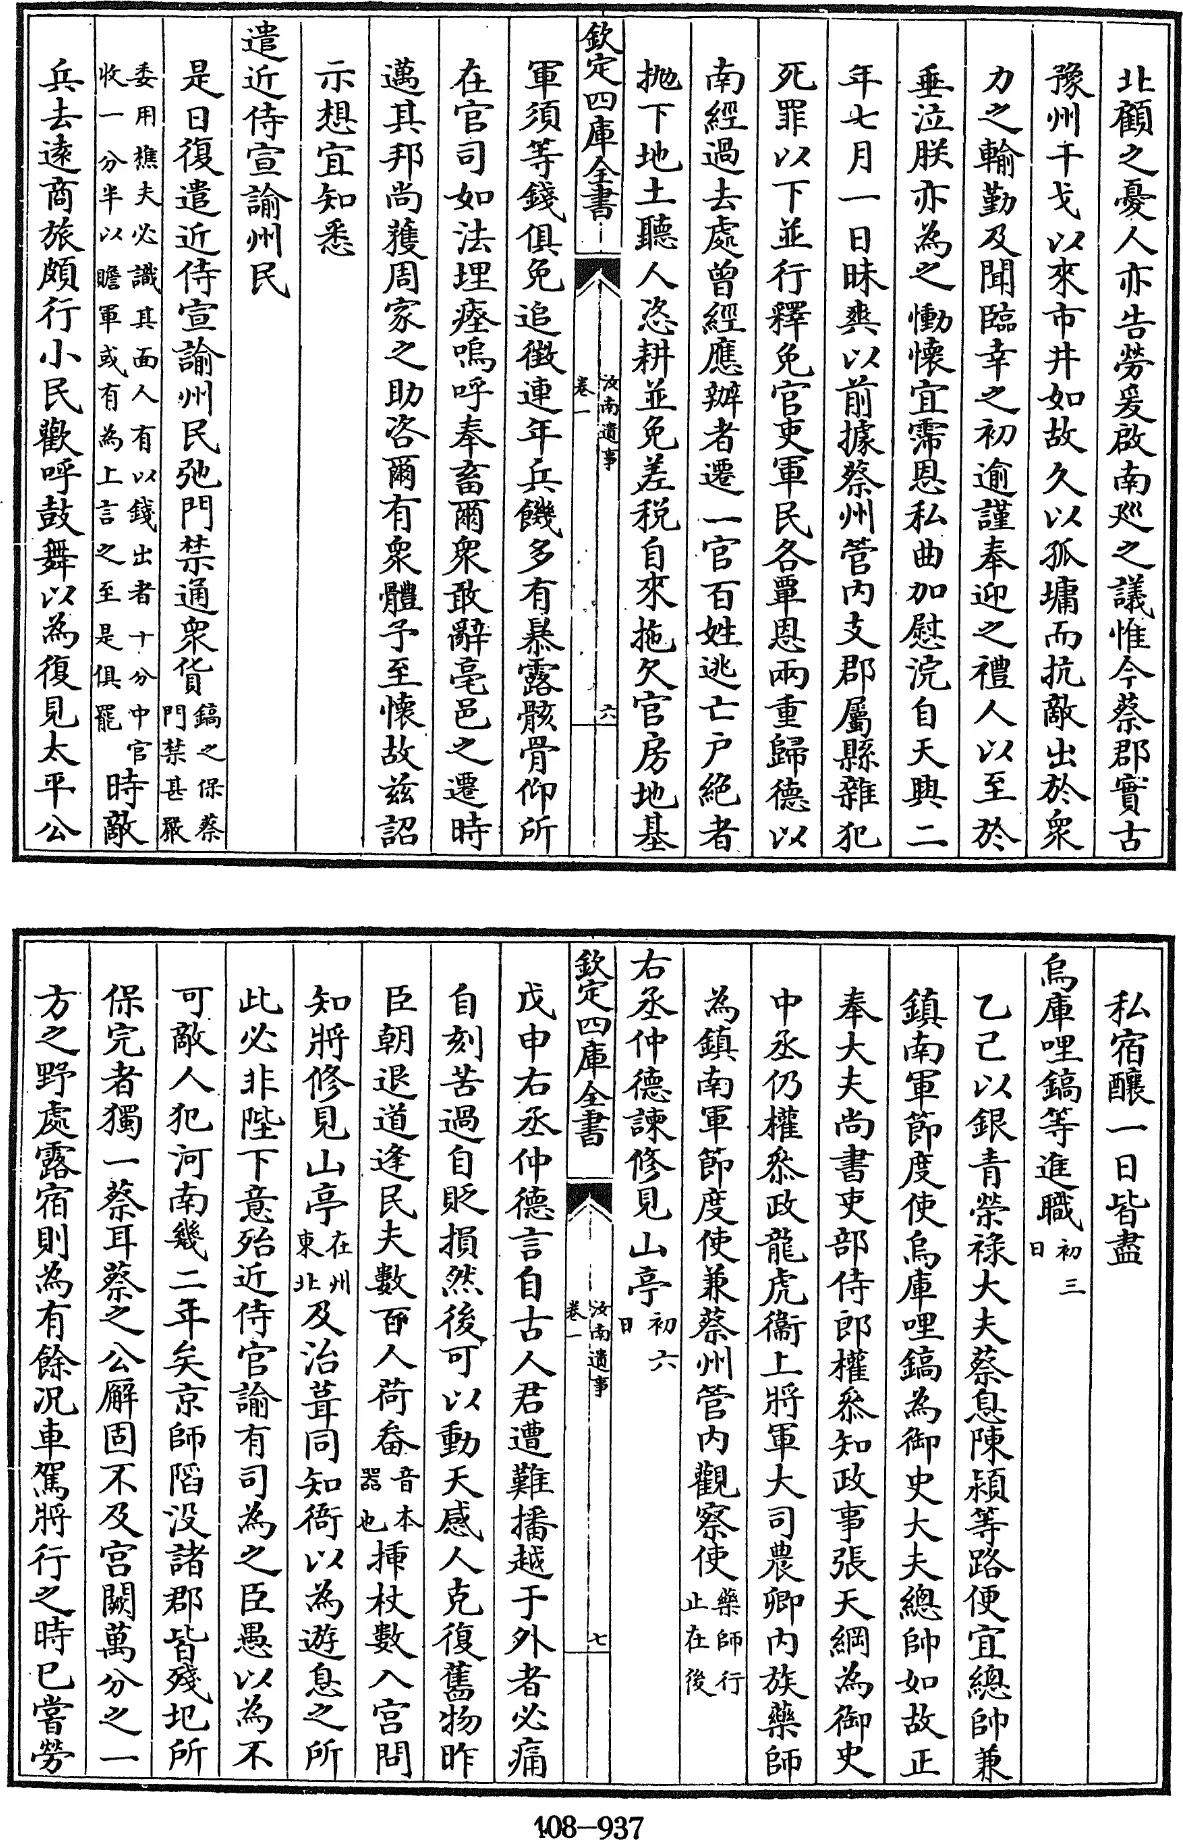 北顧之憂人亦告勞爰啟南巡之議惟今蔡郡實古
豫州干戈以來市井如故久以孤墉而抗敵出於衆
力之輸勤及聞臨幸之初逾謹奉迎之禮人以至於
垂泣朕亦為之慟懷宜霈恩私曲加慰浣自天興二
年七月一日昧爽以前據蔡州管内支郡屬縣雜犯
死罪以下並行釋免官吏軍民各覃恩兩重歸德以
南經過去處曾經應辦者遷一官百姓逃亡户絶者
抛下地土聽人恣耕並免差税自來拖欠官房地基
欽定四庫全書
汝南遺事
卷一
六
軍須等錢俱免追徴連年兵饑多有暴露骸骨仰所
在官司如法埋瘞嗚呼奉畜爾衆敢辭亳邑之遷時
邁其邦尚獲周家之助咨爾有衆體予至懷故兹詔
示想宜知悉
遣近侍宣諭州民
是日復遣近侍宣諭州民弛門禁通衆貨鎬之保蔡
門禁甚嚴
委用樵夫必識其面人有以錢出者十分中官
收一分半以贍軍或有為上言之至是俱罷時敵
兵去逺商旅頗行小民歡呼鼓舞以為復見太平公
私宿釀一日皆盡
烏庫哩鎬等進職初三
日
乙已以銀青榮禄大夫蔡息陳潁等路便宜總帥兼
鎮南軍節度使烏庫哩鎬為御史大夫總帥如故正
奉大夫尚書吏部侍郎權叅知政事張天綱為御史
中丞仍權叅政龍虎衞上將軍大司農卿内族藥師
為鎮南軍節度使兼蔡州管内觀察使藥師行
止在後
右丞仲德諫修見山亭初六
日
欽定四庫全書
汝南遺事
卷一
七
戊申右丞仲德言自古人君遭難播越于外者必痛
自刻苦過自貶損然後可以動天感人克復舊物昨
臣朝退道逢民夫數百人荷畚音本
器也揷杖數入宫問
知將修見山亭在州
東北及治葺同知衙以為遊息之所
此必非陛下意殆近侍官諭有司為之臣愚以為不
可敵人犯河南幾二年矣京師陷没諸郡皆殘圮所
保完者獨一蔡耳蔡之公廨固不及宫闕萬分之一
方之野處露宿則為有餘況車駕將行之時已嘗勞
108-937